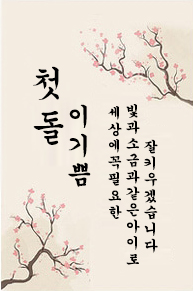 첫돌
이기쁨
세상에꼭필요한
빛과소금과같은아이로
잘키우겠습니다